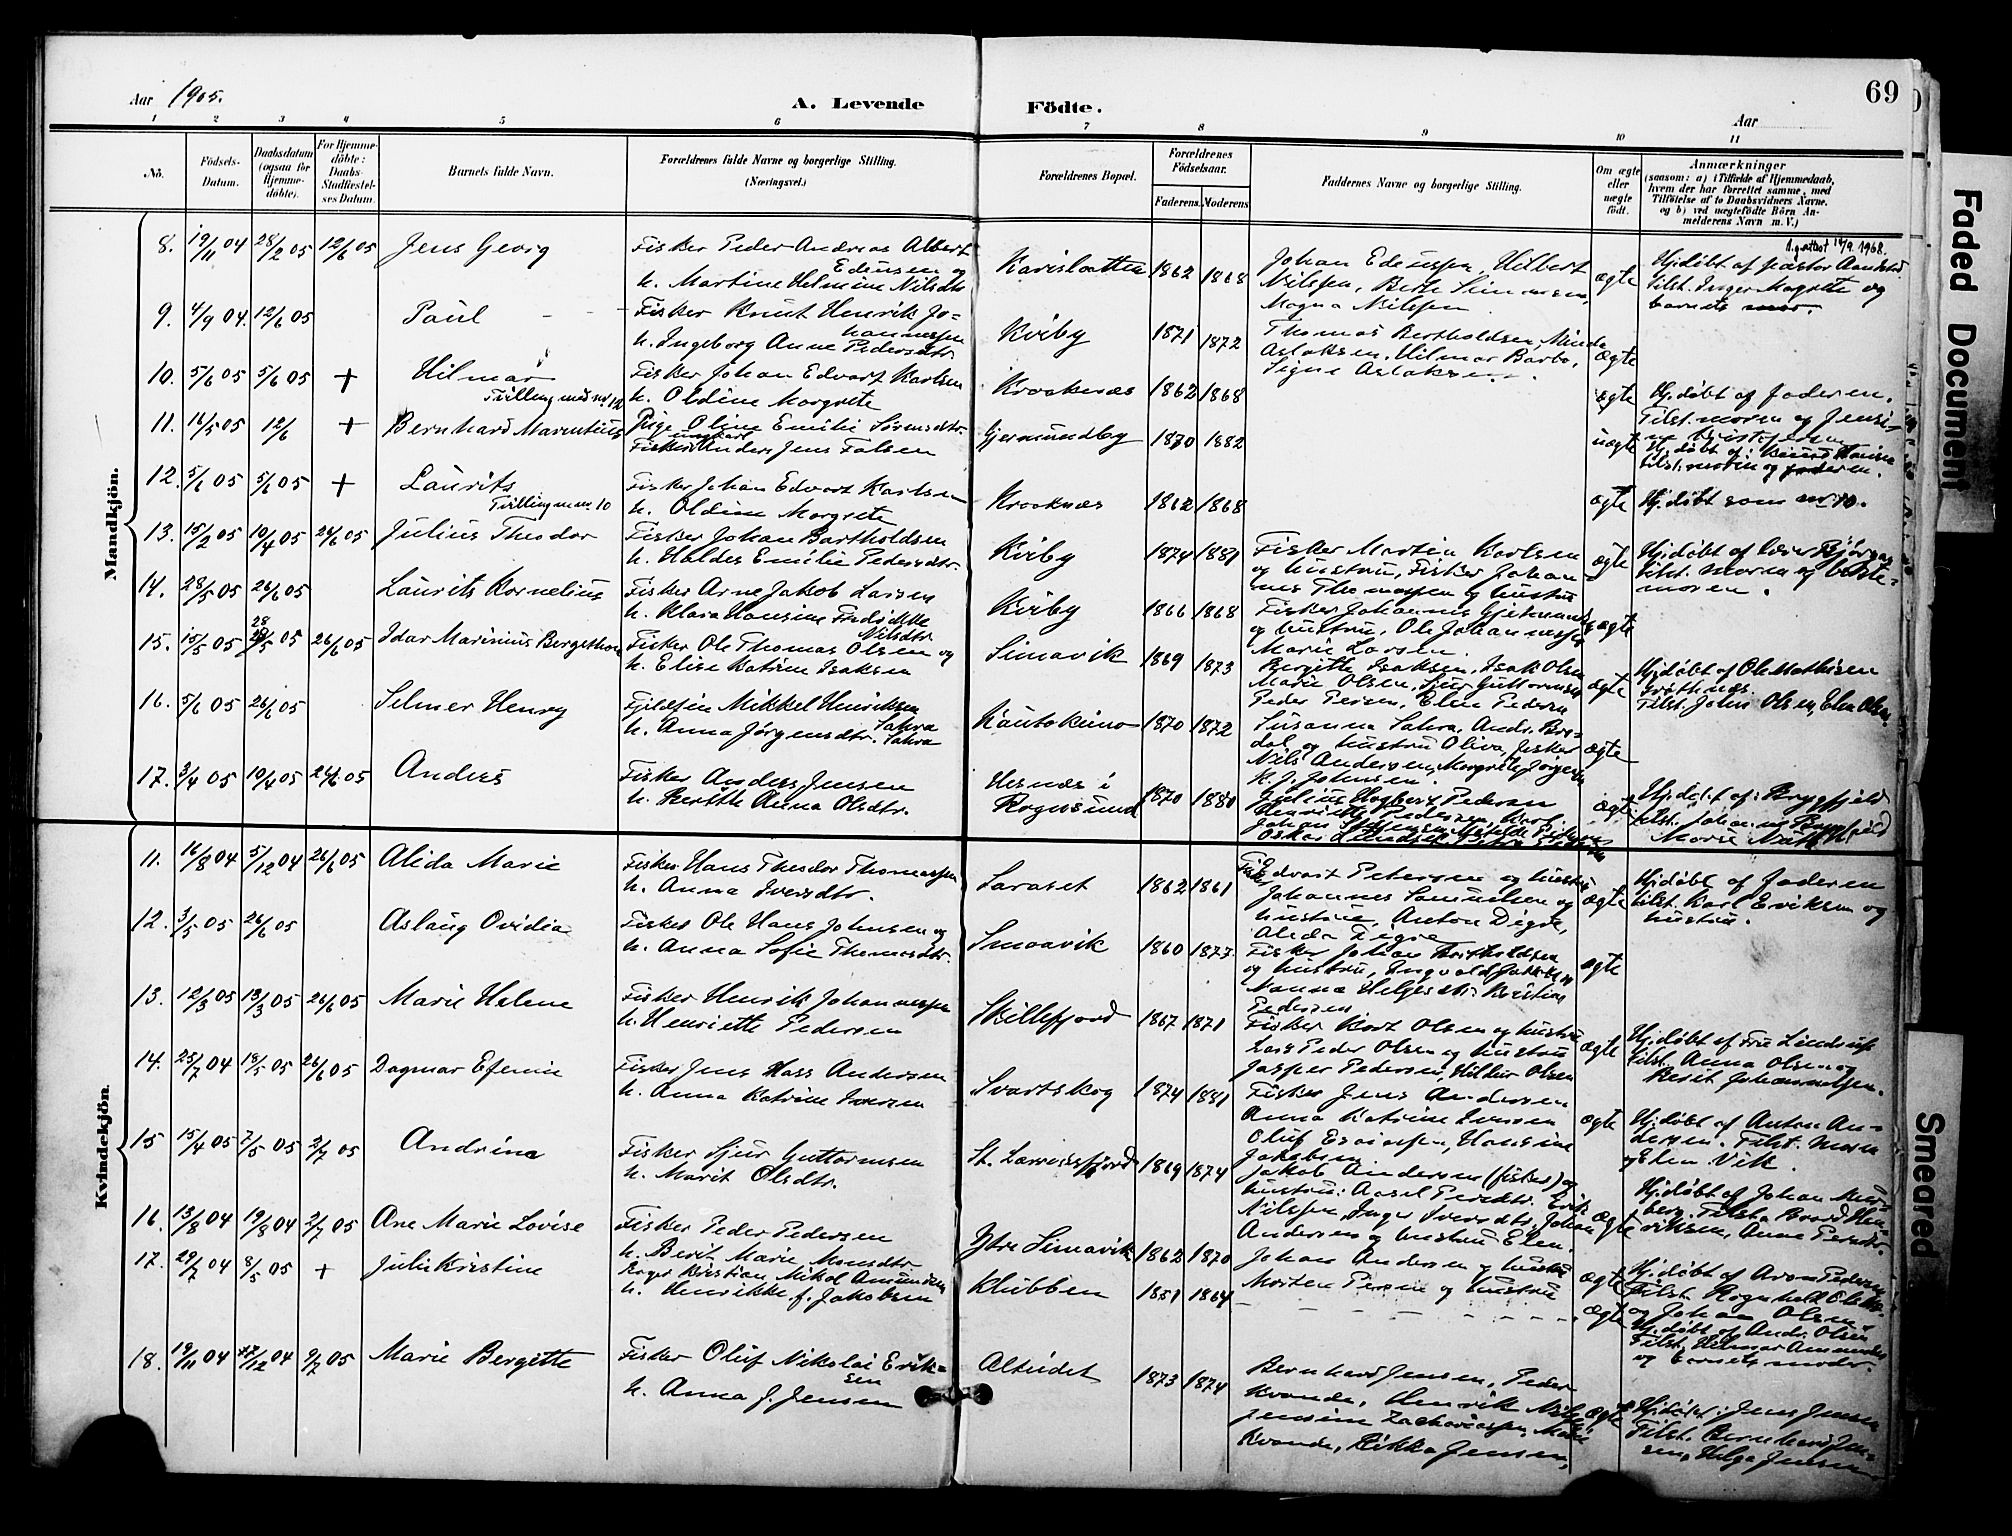 69
Aar 1905.
A. Levende Födte.
Aar
1 2 3 4 5 6 7 8 9 10 11
No.
Födsels-Datum.
Daabsdatum (ogsaa for Hjemme-döbte).
For Hjemme-döbte: Daabs-Stadfæstel-ses Datum.
Barnets fulde Navn.
Forældrenes fulde Navne og borgerlige Stilling. (Næringsvei.)
Forældrenes Bopæl.
Forældrenes Födselsaar.
Faderens. Moderens.
Faddernes Navne og borgerlige Stilling.
Om ægte eller uægte födt.
Anmærkninger
(saasom: a) i Tilfælde af Hjemmedaab, hvem der har forrettet samme, med Tilföielse af to Daabsvidners Navne, og b) ved uægtefödte Börn An-melderens Navn m. V.)
Mandkjön.
8. 19/11 04 28/2 05 12/6 05 Jens Georg
Fisker Peder Andreas Albert
Edensen og
h. Martine Helmine Nilsdtr
1862 1868
Nilssen,
Magna Nilssen
ægte
Hj.døbt af pastor
tilst. Inger Margrete og
barnets mor.
9. 4/9 04. 12/6 05 Paul
Fisker Knut Henrik Jo=
hannessen
h. Ingeborg Anne Pedersdtr.
Kviby 1871 1872
Thomas Bertholdsen,
Aslaksen, Hilmar Barbo,
Signe Aslaksen
ægte
10. 5/6 05 5/6 05 + Hilmar
Tvilling med nr. 12
Fisker Johan Edvart Karlsen
h. Oldine Margrete
Kraaknæs 1862 1868
ægte
Hj.døbt af faderen.
Tilst. moren og Jensi-
11. 16/5 05 12/6 + Bernhard Marentius
Pige Oline Emilie Sørensdtr.
ungkarl
Fisker Anders Jens Falsen
Gjermundby 1870 1882
uægte
tilst. moren og faderen.
12. 5/6 05 5/6 05 + Laurits
Tvilling m. nr. 10
Fisker Johan Edvart Karlsen
h. Oldine Margrete
Kraaknæs 1862 1868
ægte
Hj.døbt som nr 10.
13. 15/2 05 10/4 05 24/6 05 Julius Theodor
Fisker Johan Bartholdsen
h. Haldis Emilie Pedersdtr.
Kviby 1874 1881
Fisker Martin Karlsen
og hustru, Fisker Johan-
nes Thomassen og hustru
ægte
Hj.døbt af
tilst. moren og beste=
moren.
14. 28/5 05 26/6 05 Laurits Kornelius
Fisker Arne Jakob Larsen
h. Klara Hansine Fredrikke
Nilsdtr.
Kviby 1866 1868
Fisker Johannes
og hustru, Ole Johannessen,
Marie Larsen.
ægte
15. 15/5 05 28/5 05 26/6 05 Idar Marinius Bergethon
Fisker Ole Thomas Olsen og
h. Elise Katrine Isaksen
Simavik 1869 1873
Bergitte Isaksen, Isak Olsen
Marie Olsen,
Peder Persen, Elen Pedersen
ægte
Hj.døbt af Ole Mathisen
Tilst. Johs Olsen, Elen Olsen
16. 5/6 05 26/6 05 Selmer Henry
Fjeldfin Mikkel Henriksen
Sahra
h. Anna Jørgensdtr. Sahra
Kautokeino 1870 1872
Susanna Sahra, Andr. Bre-
dal og hustru Oliva, fisker
Nils Andersen, Margrete Jørgens
K. J. Johnsen.
ægte
17. 3/4 05 10/4 05 24/6 05 Anders
Fisker Anders Jensen
h. Berith Anna Olsdtr.
i
Rognsund 1870 1880
Julius Pedersen
ægte
Hj.døbt af: Bryggfjeld
Kvindekjön.
11. 16/8 04 5/12 04 26/6 05 Alida Marie
Fisker Hans Theodor Thomassen
h. Anna Iversdtr.
Saraset 1862 1861
Fisker Edvart Petersen og hustru
Johannes Samuelsen og
hustru, Anton Digre,
Alida Digre
ægte
Hj.døbt af faderen
tilst. Karl Eriksen og
hustru.
12. 3/5 05 26/6 05 Aslaug Ovidia
Fisker Ole Hans Johnsen og
h. Anna Sofie Thomasdtr.
Smaavik 1860 1877
Fisker Johan Bertholdsen
og hustru, Ingvald
Nanna Helgesdtr. Kristian
Pedersen
ægte
13. 12/3 05 13/3 05 26/6 05 Marie Helene
Fisker Henrik Johannessen
h. Henriette Pedersen
Skillefjord 1867 1871
Fisker Kort Olsen og hustru
Lars Peder Olsen og hustru
Jasper Pedersen, Hildur Olsen
ægte
Hj.døbt af Fru Lindrup
tilst. Anna Olsen og
Berit Johannessen.
14. 25/7 04 18/5 05 26/6 05 Dagmar Efenie
Fisker Jens Hass Andersen
h. Anna Katrine Iversen
Svartskog 1874 1881
Fisker Jens Andersen
Anna Katrine Iversen
Oluf Esaiassen, Hansine
Jakobsen
ægte
Hj.døbt af Anton An-
dersen. Tilst. Moren
og Elen Vik.
15 15/4 05 7/5 05 2/7 05 Andrine
Fisker Sjur Guttormsen
h. Marit Olsdtr.
St. Lerresfjord 1869 1874
Jakob Andersen (fisker) og
hustru: Aasel Persdtr. Erik
Nilssen, Inger Iversdtr. Johan
Andersen og hustru Elen.
ægte
Hj.døbt af Johan
Tilst. Baard Hen-
riksen, Anne Persdtr.
16. 13/8 04 19/8 04 2/7 05 Ane Marie Lovise
Fisker Peder Pedersen
h. Berit Marie Monsdtr
Ytre Simavik 1862 1870
Johan Andersen og hustru
Morten Persen og hustru
ægte
Hj.døbt af Aron Pedersen
Tilst. Ragnhild
og Johan Olsen.
17. 29/7 04 8/5 05 + Julie Kristine
Kristian Mikal Amundsen
h. Henrikke f. Jakobsen
Klubben 1851 1864
ægte
Hj.døbt af Andr. Olsen
Tilst. Helmar Amundsen
og barnets moder.
18. 19/11 04 27/12 04 9/7 05 Marie Bergitte
Fisker Oluf Nikolai Erik=
sen
h. Anna J. Jensen
Alteidet 1873 1874
Bernhard Jensen, Peder
Kvande, Henrik
Jensine Zachariassen, Marie
Kvande, Rikka Jensen,
ægte
Hj.døbt: Jens Jensen
Tilst. Bernhard Jen-
sen, Helga Jensen
Faded Document
Smeared